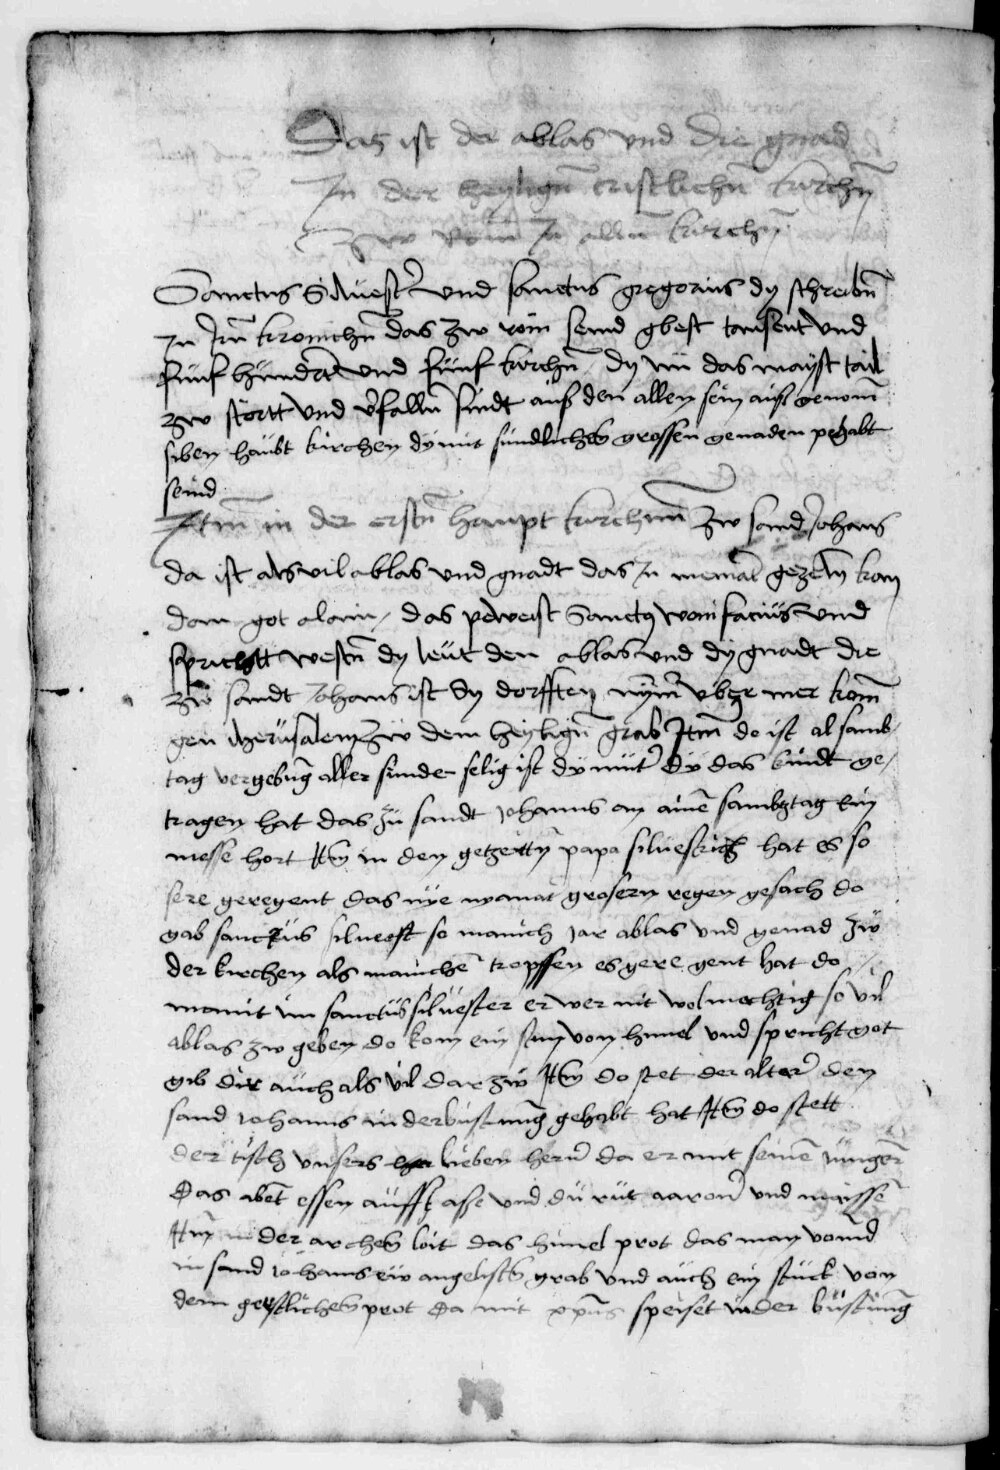 Das ist der ablas und die gnad
In der heyligñ cristlichñ kirchñ
Zw Rom In allen kirchñ
Sanctus Siluester und sanctus gregorius dy schreibñ
In Irñ kronichñ das zw rom seind gbest tausent und
fünf hundert und fünf kirchñ dy nü das mayst tail
zw stortt und vfallñ sindt auß den allen sein auß genom̄
siben haubt kirchen dy mit sündlichen grossen genaden pegabt
seind
Itm̄ in der erstñ haupt kirchnn zw sand Johans
da ist als vil ablas und gnadt das In nemãl gezeln kan
dan got alain / das peweist Sanctus wonifacius und
sprichtt westñ dy leüt den ablas und dy gnadt die
zw sandt Johans ist Sy dorfften nym̄er über mer kom̄
gen iherusalem zw dem heyligñ grab Itm̄ do ist al samb
tag vergebūg aller sunde selig ist dy muter dy das kindt ge/
tragen hat das zü sandt Johanns an ainē sambztag ein
messe hort Itm̄ in den getzeittñ papa siluestri hat es so
sere geregent das nye grosern regen gesach do
gab sanctus siluest so manich Jar ablas und genad zw
der kirchen als manichē tropffen es gere gent hat do
maint im sanctus siluester er wer nit wolmechtig so vil
ablas zw geben do kom ein stim von himel und spricht got
gib dir auch als vil dar zw Itm̄ do stet der alter den
sand Johanns in der wüstung gehabt hat Itm̄ do stett
der tisch unsers lieben herñ da er mit seinē Jungern̄
das abēt essen auff aße und dü rüt aarons und moissē
Itm̄ in der archen loit das himel prot das man vound
in sand Johanns ewangelisten grab und auch ein stuck von
dem gerstlichen prot da mit xpūs speiset in der wüstung